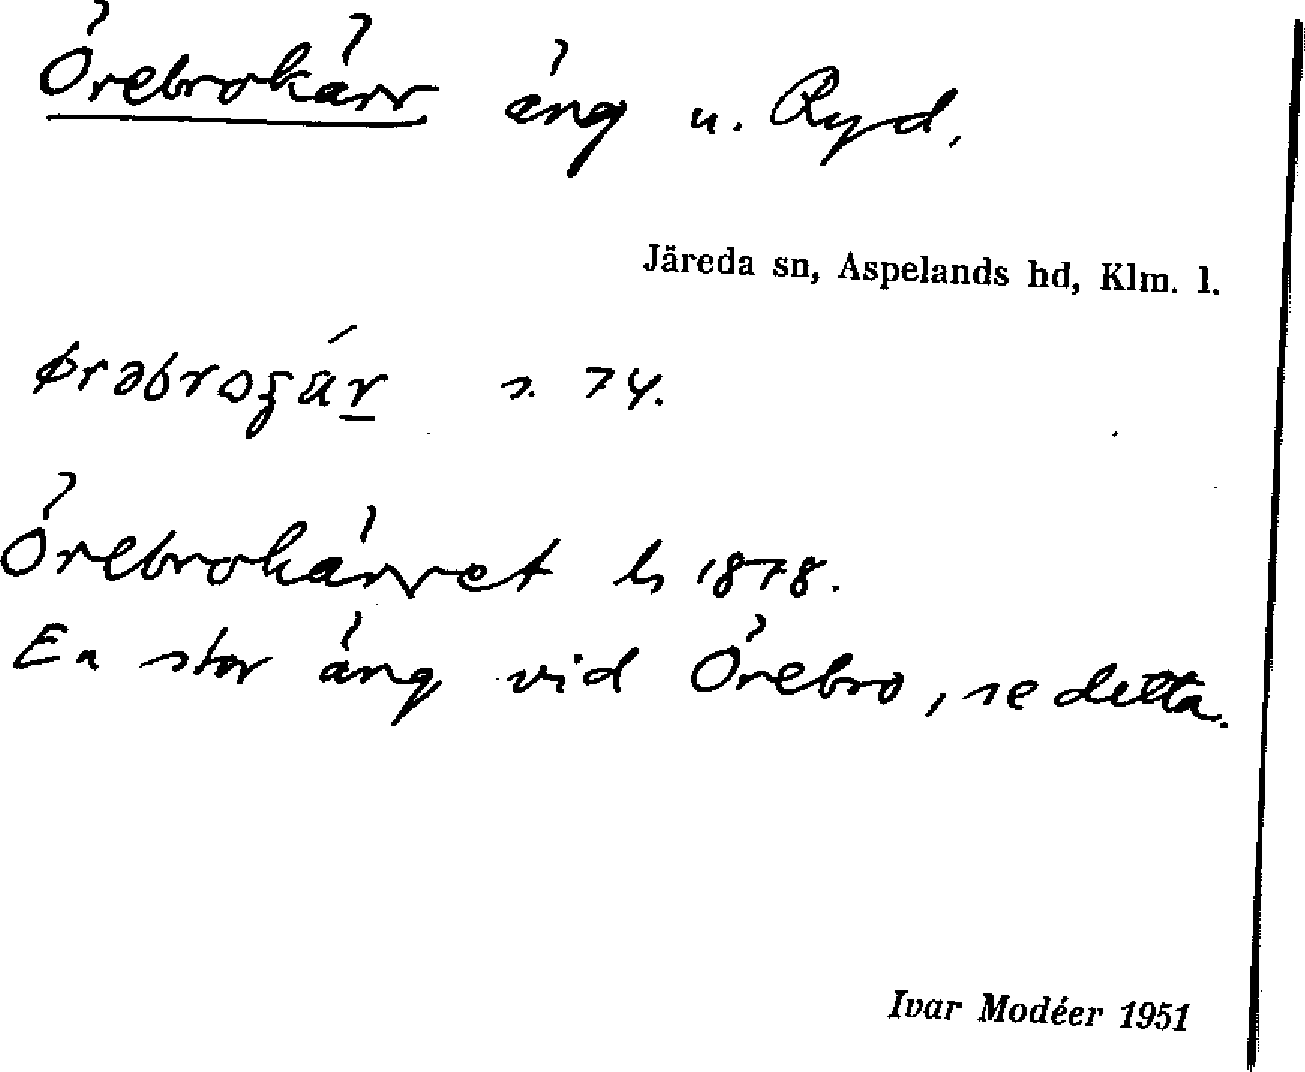 Örebrokärr äng u. Ryd.
Järeda sn, Aspelands hd, Klm. l.
ørəbroʒár s. 74.
Örebrokärret ls 1878.
En stor äng vid Örebro, se detta.
Ivar Modéer 1951